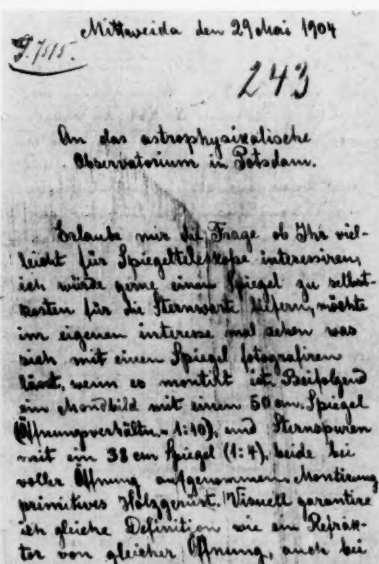 Mittweida den 29 Mai 1904
J. 7515.
243
An das astrophysikalische
Observatorium in Potsdam.
Erlaube mir die Frage ob Ihr viel-
leicht für Spiegelteleskope interessiren,
ich würde gerne einen Spiegel zu selbst-
kosten für die Sternwarte liefern, möchte
im eigenen interesse mal sehen was
sich mit einem Spiegel fotografiren
lässt, wenn es montirt ist. Beifolgend
ein Mondbild mit einem 50 cm. Spiegel
(Öffnungsverhältn. = 1:10), und Sternspuren
mit ein 38 cm Spiegel (1:4), beide bei
voller Öffnung aufgenommen. Montirung
primitives Holzgerüst. Visuell garantire
ich gleiche Definition wie ein Refrak-
tor von gleicher Öffnung, auch bei